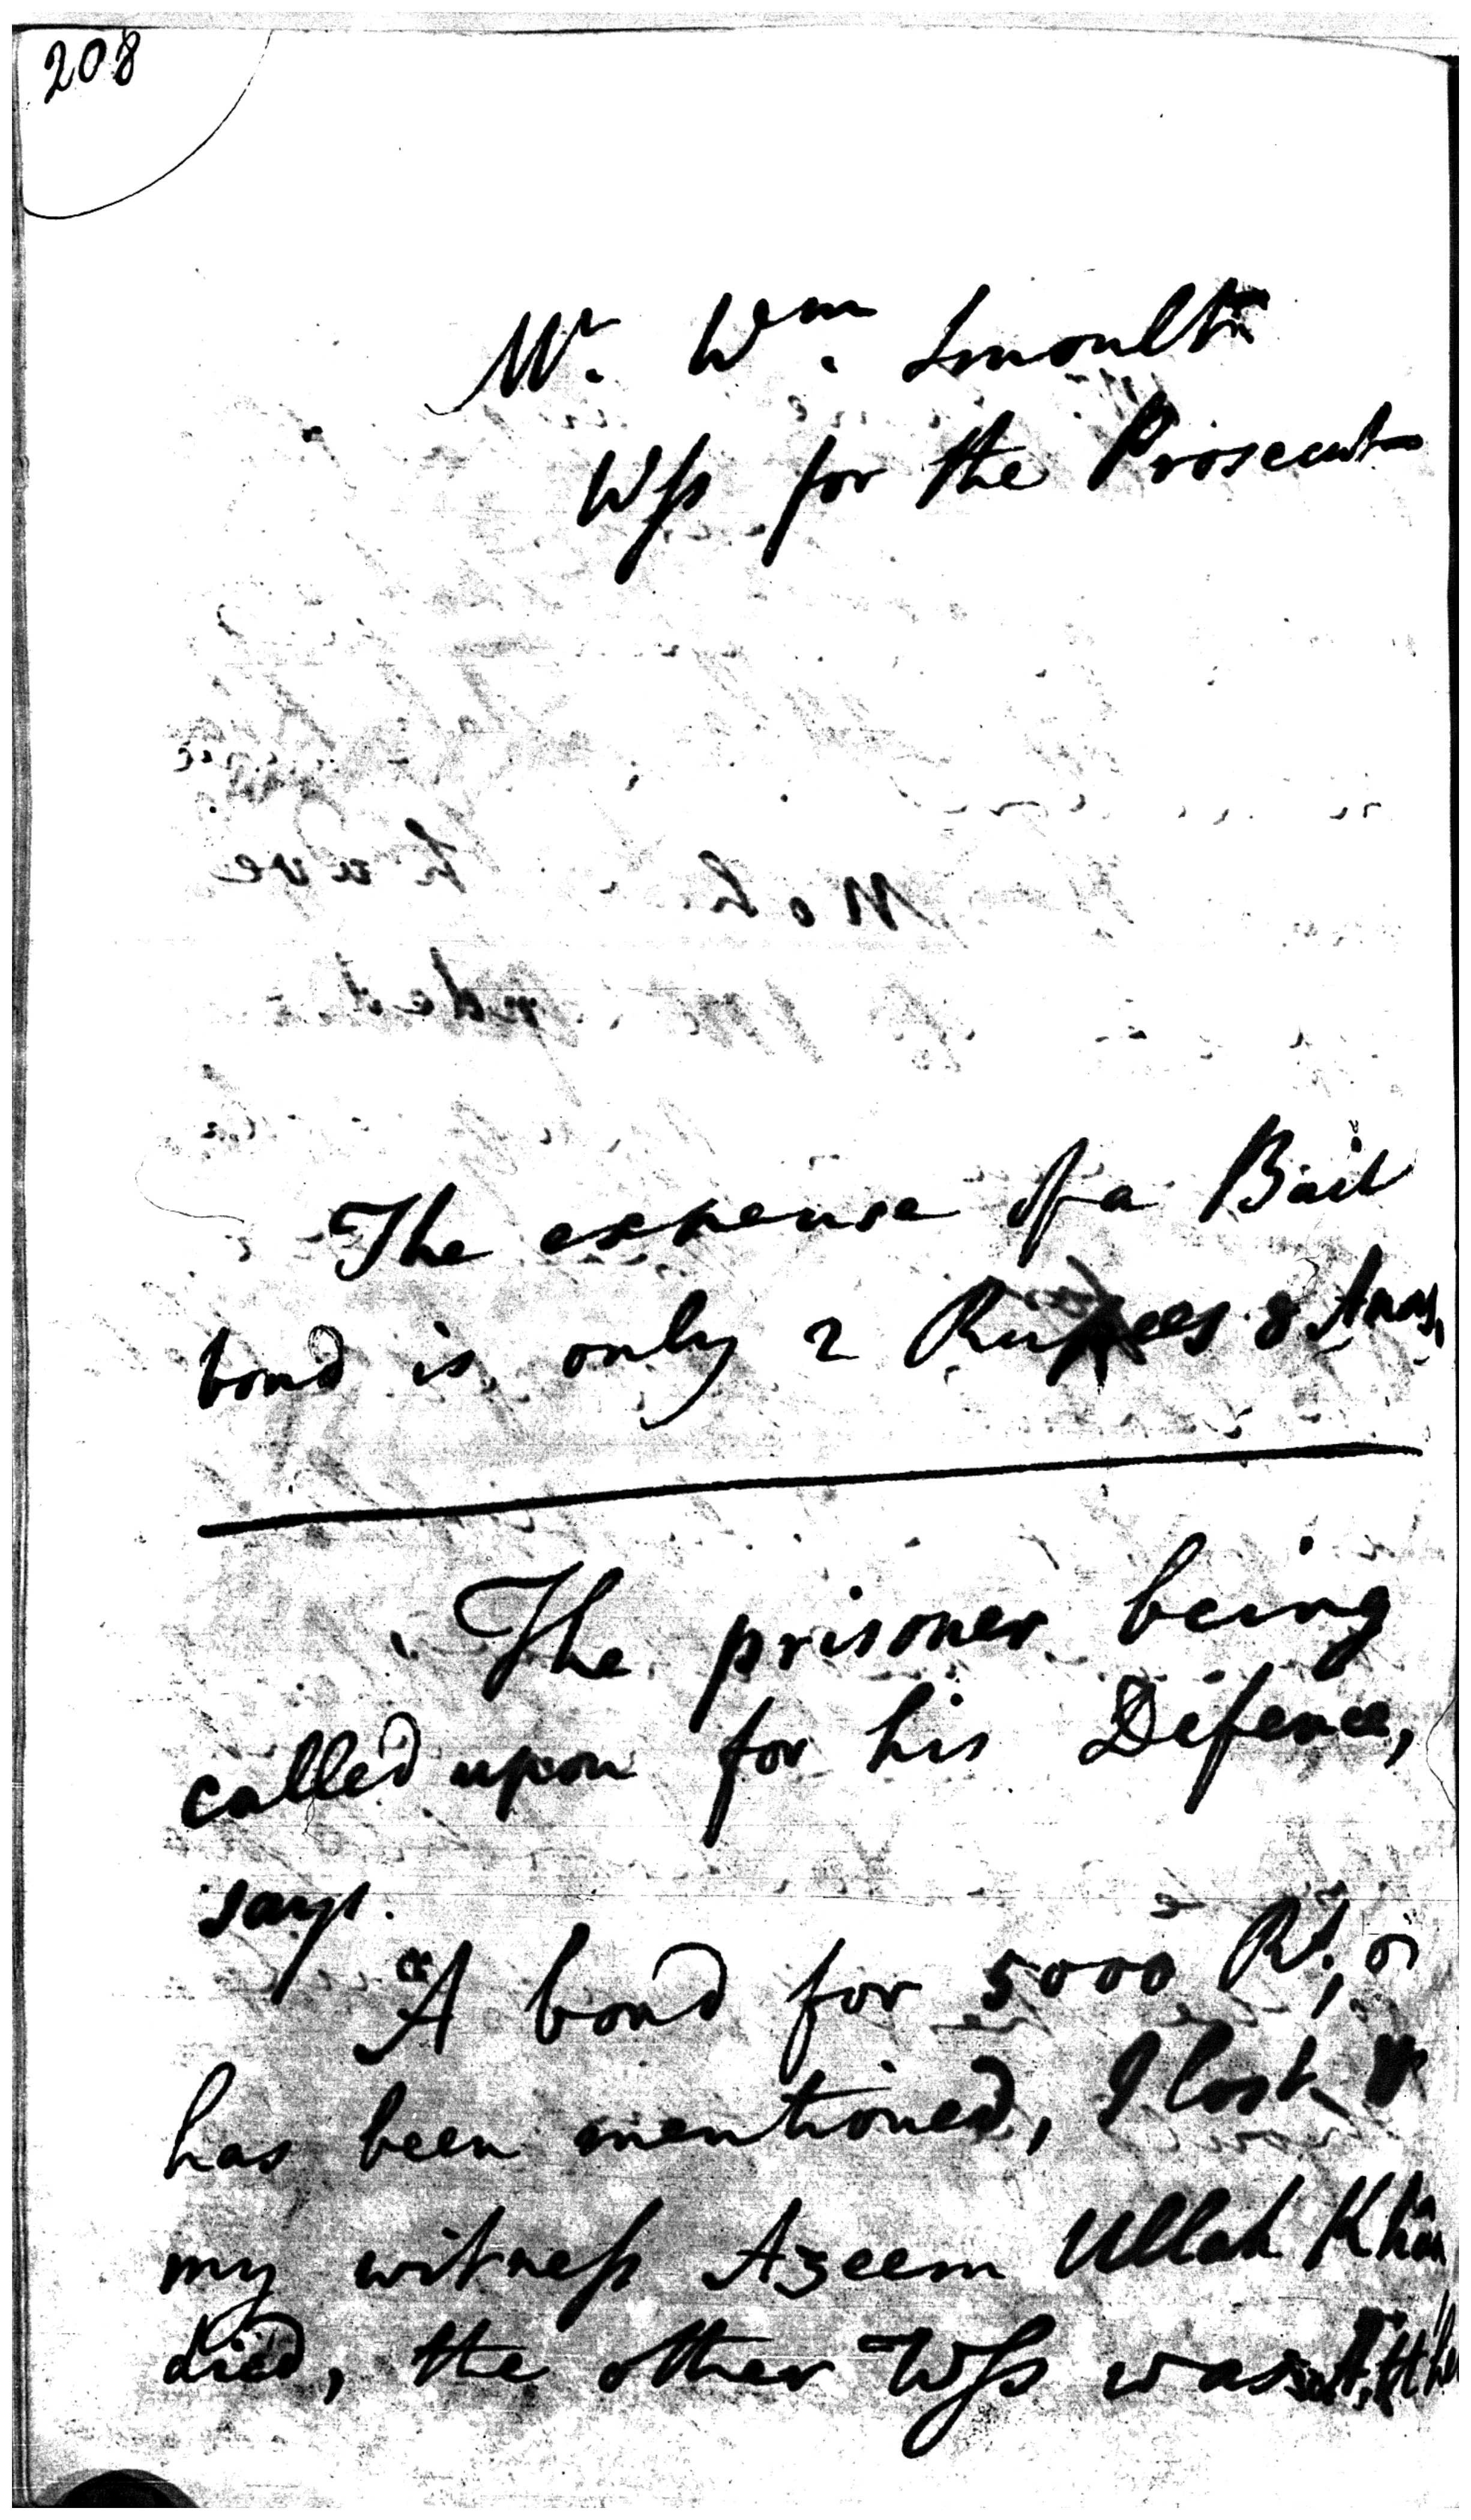 208
Mr. Wm. Smoult
Wss for the Prosecut
The expense of a Bail
bond is only 2 Rupees 8 Anas.
The prisoner being
called upon for his Defence,
says.
"A bond for 5000 Rs.,
has been mentioned, I lost
my witness Azeem Ullah Khan
died, the other Wss was